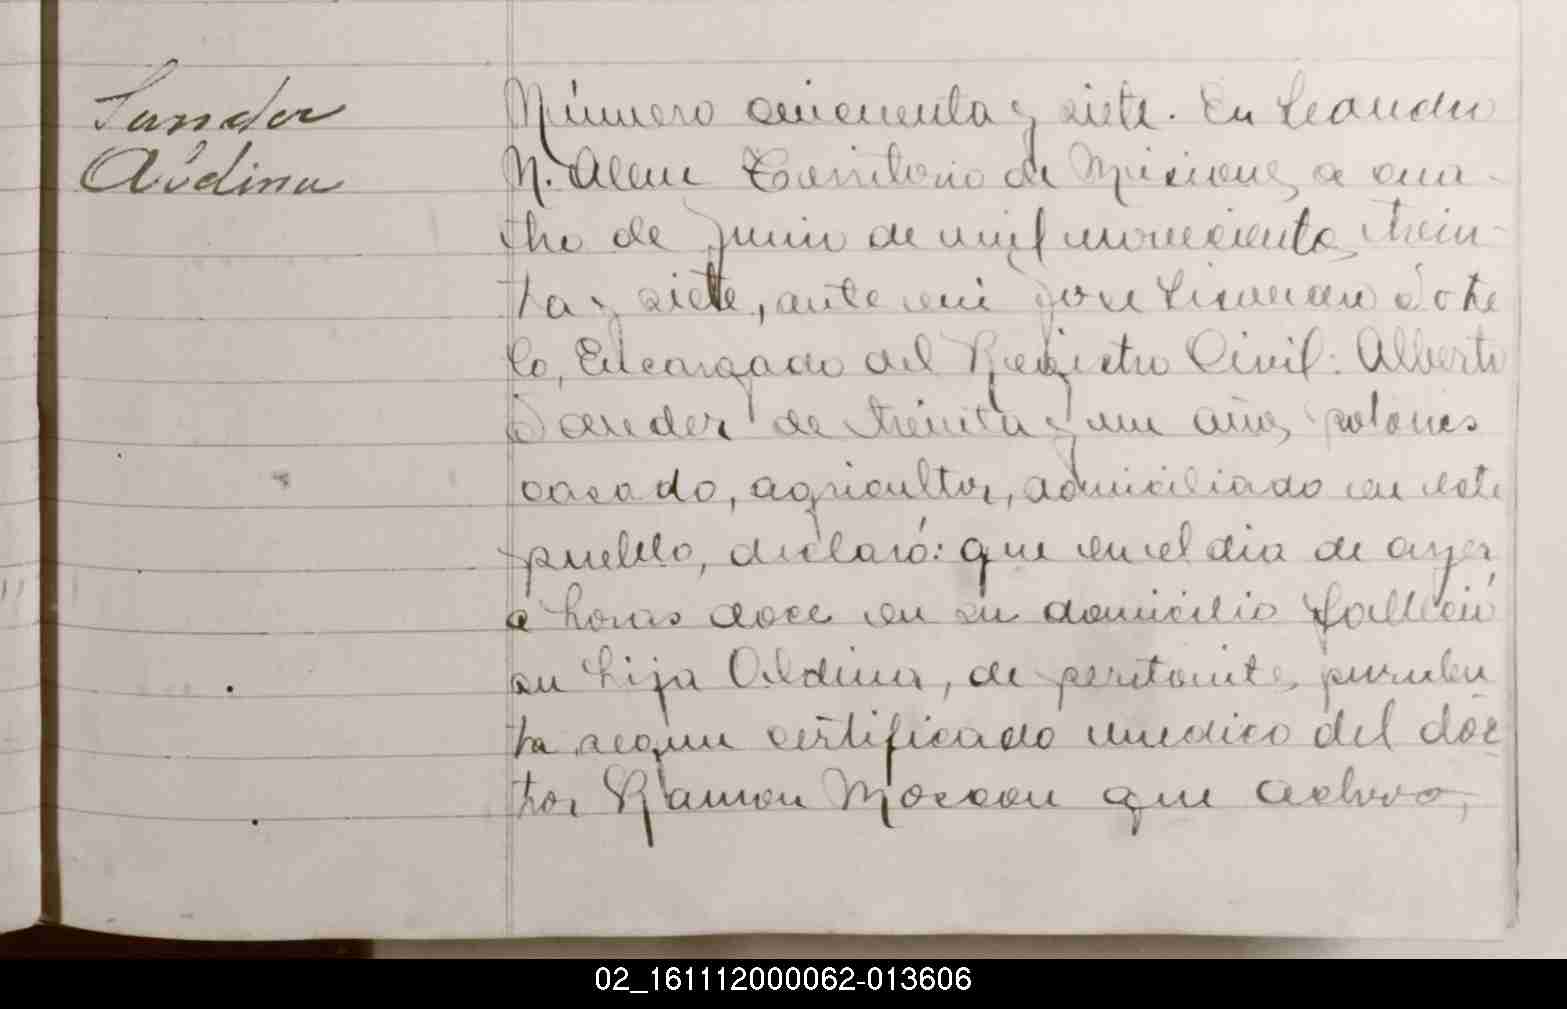 Sander
Aldina
Número cincuenta y siete. En Leandro
N. Alem Territorio de Misiones, a cua-
tro de Junio de mil novecientos trein-
ta y siete, ante mi José Sote
lo, Encargado del Registro Civil: Alberto
Sander de treinta y un años, polones
casado, agricultor, domiciliado en este
pueblo, declaró: que en el dia de ayer
a horas doce en su domicilio falleció
su hija Aldina, de peritonitis purulen
ta segun certificado medico del doc
tor Ramon que archivo,
02_161112000062-013606